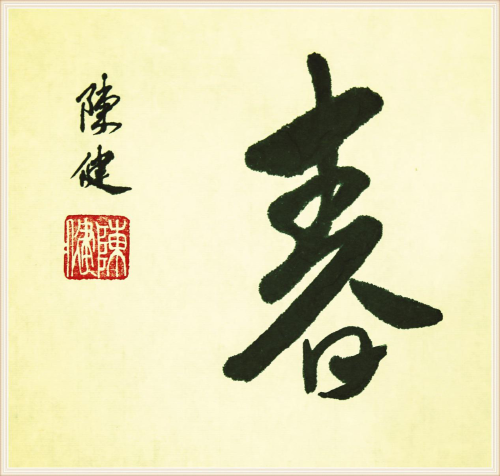 春
陳健
陳健